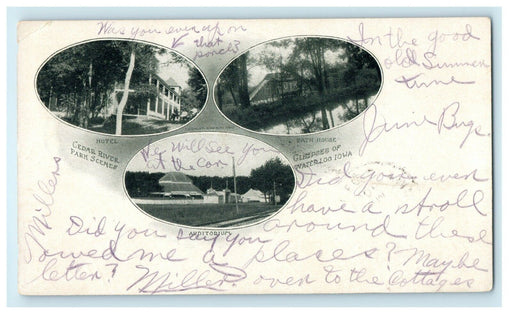 Was you ever up on
that
porch?
In the good
old Summer
time
HOTEL
CEDAR RIVER
PARK SCENES
BATH HOUSE
GLIMPSES OF
WATERLOO IOWA
June Bugs.
We Will See you
at the Car
AUDITORIUM
Millers
Did you ever
have a stroll
around these
places? Maybe
over to the Cottages
Did you say you
owed me a
letter?
Miller.